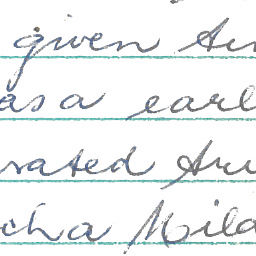 given
as a earl
rated
cha Mild